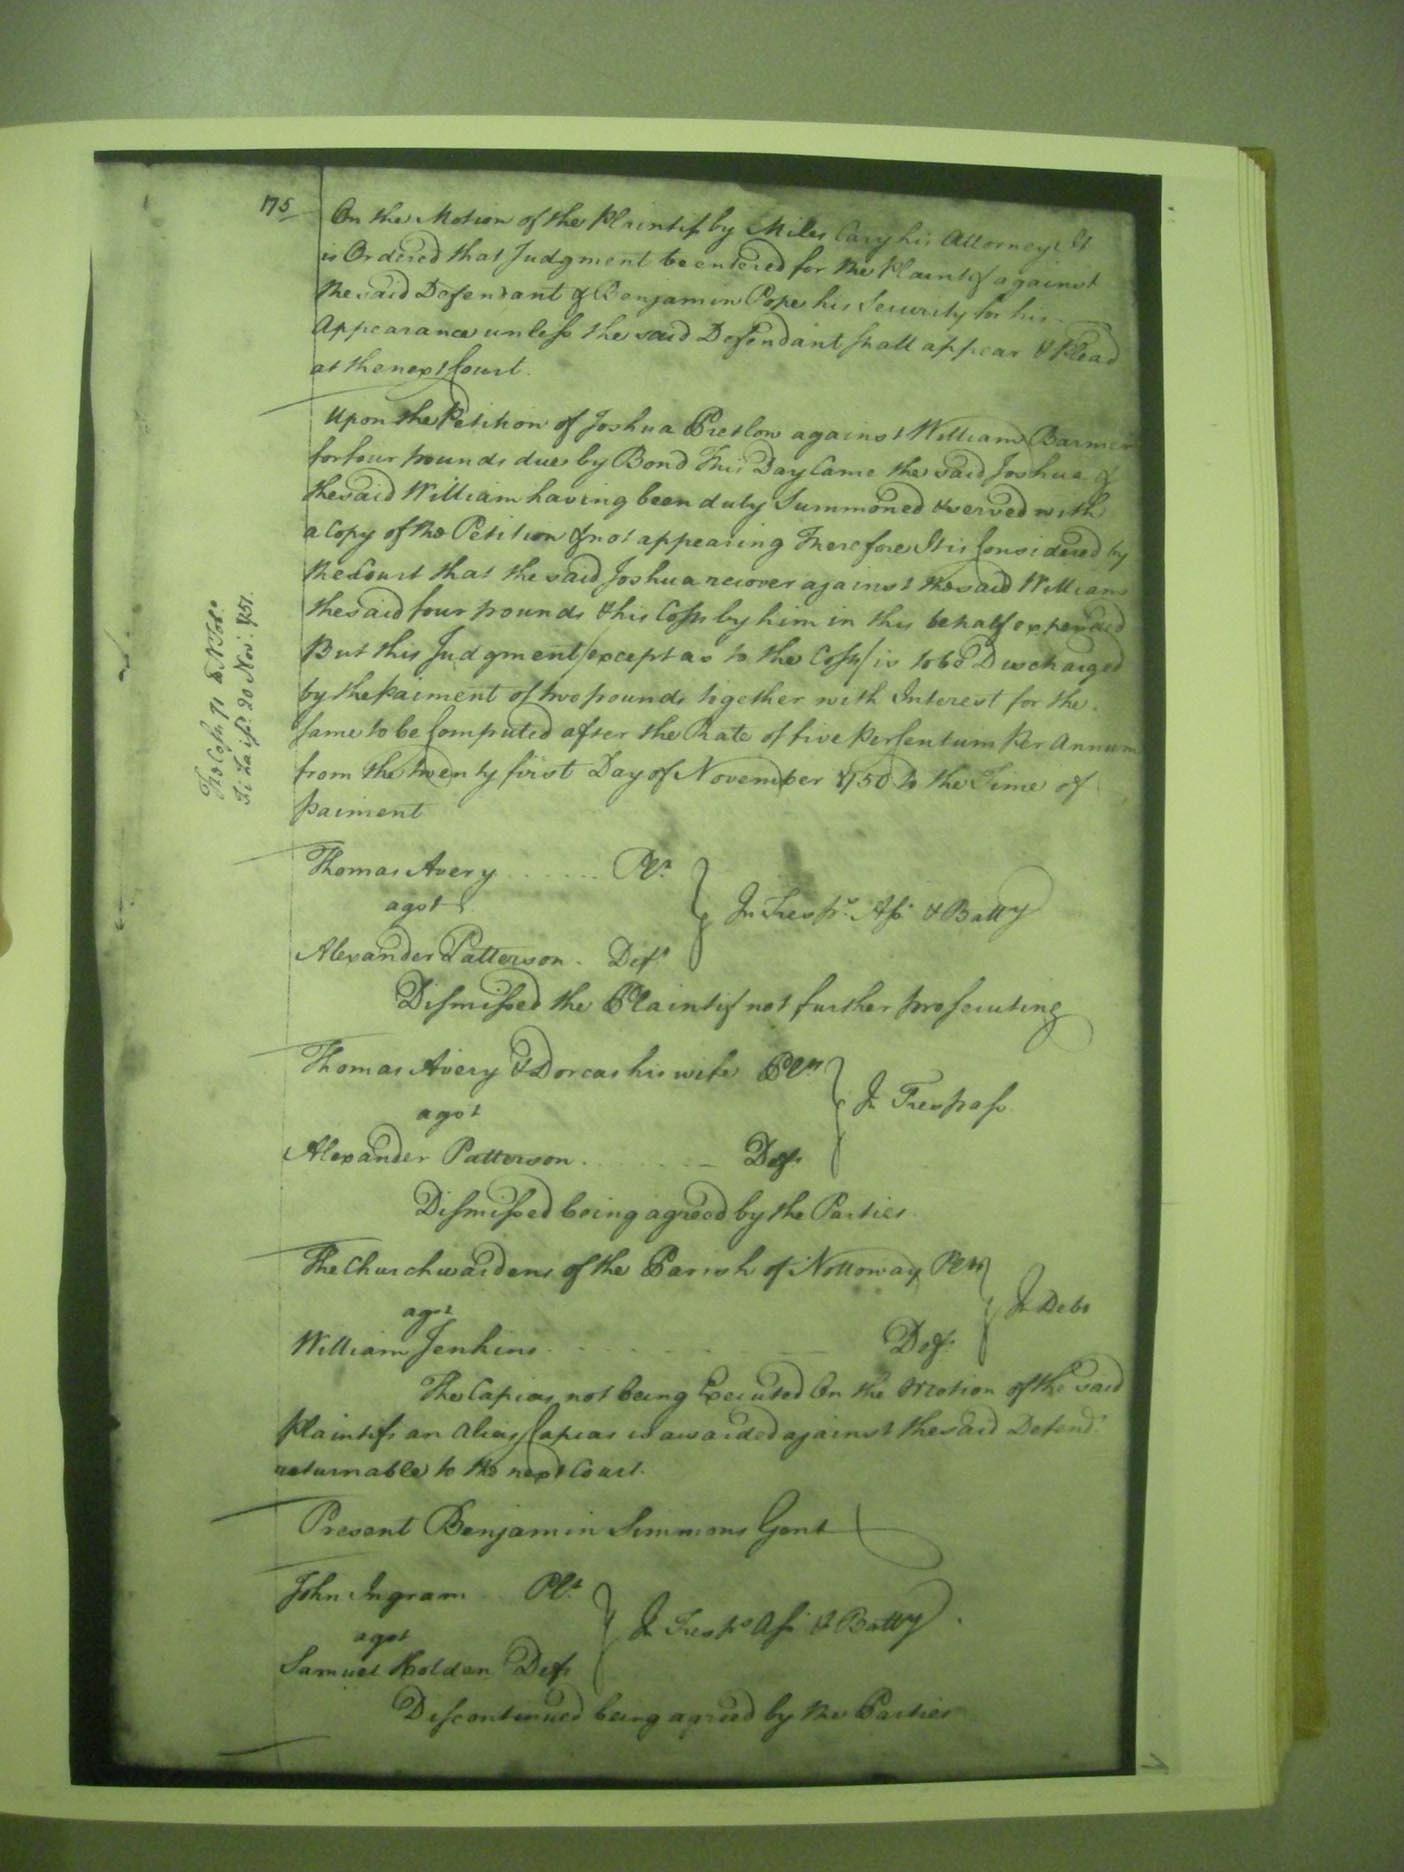 175
On the Motion of the Plaintif by Miles Cary his Attorney It
is Ordered that Judgment be entered for the Plaintif against
the said Defendant & Benjamin Pope his Security for his
Appearance unless the said Defendant shall appear & Plead
at the next Court.
Upon the Petition of Joshua Pretlow against William Barmer
for four pounds due by Bond This Day Came the said Joshua &
the said William having been duly Summoned & served with
a Copy of the Petition & not appearing Therefore It is Considered by
the Court that the said Joshua recover against the said William
the said four pounds & his Costs by him in this behalf expended
But this Judgment (except as to the Costs) is to be Discharged
by the paiment of two pounds together with Interest for the
same to be Computed after the Rate of five Per Centum Per Annum
from the twenty first Day of November 1750 to the Time of
paiment
The Costs 71
Fi Fa iss. 20 Nov. 1751.
Thomas Avery Plt.
agst
In Tresps. Asst. & Batty
Alexander Patterson Deft
Dismissed the Plaintif not further prosecuting
Thomas Avery & Dorcas his wife Plts
agst
In Trespass
Alexander Patterson Deft
Dismissed being agreed by the Parties
The Churchwardens of the Parish of Nottoway Plts
agst
In Debt
William Jenkins Deft
The Capias not being Executed On the Motion of the said
Plaintifs an Alias Capias is awarded against the said Defendt
returnable to the next Court.
Present Benjamin Simmons Gent
John Ingram Plt
agst
In Tresps Asst & Batty
Samuel Holden Deft
Discontinued being agreed by the Parties